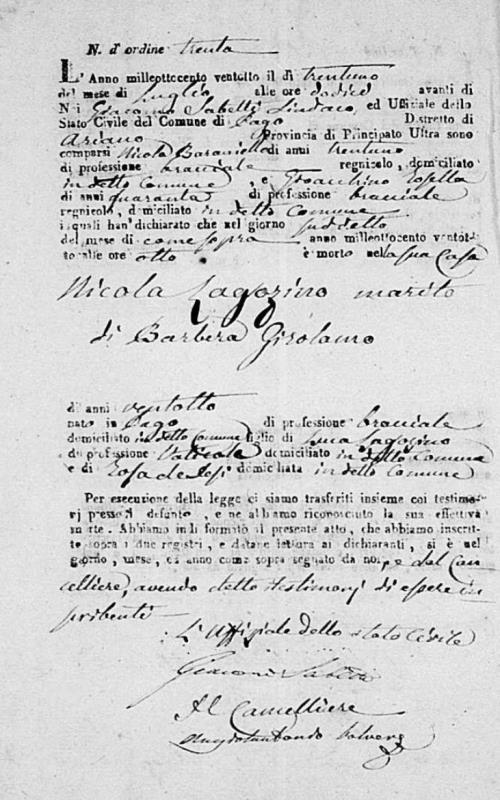 N. d'ordine trenta
L'Anno milleottocento ventotto il dì trentuno
del mese di Luglio alle ore dodici avanti di
Noi Giacomo Sabelli Sindaco, ed Uffiziale dello
Stato Civile del Comune di Pago Distretto di
Ariano Provincia di Principato Ultra sono
comparsi Nicola Baraniello di anni trentuno
di professione bracciale regnicolo, domiciliato
in detto Comune, e Gioacchino
di anni quaranta di professione bracciale
regnicolo, domiciliato in detto Comune
i quali han' dichiarato che nel giorno suddetto
del mese di come sopra anno milleottocento ventot-
to alle ore otto è morto nella sua Casa
Nicola Lagozino marito
di Barbera Girolamo
di anni ventotto
nato in Pago di professione bracciale
domiciliato in detto Comune figlio di Luca Lagozino
di professione domiciliato in detto Comune
e di Rosa de domiciliata in detto Comune
Per esecuzione della legge ci siamo trasferiti insieme coi testimo-
nj presso il defunto, e ne abbiamo riconosciuto la sua effettiva
morte. Abbiamo indi formato il presente atto, che abbiamo inscrit-
to sopra i due registri, e datane lettura ai dichiaranti, si è nel
giorno, mese, ed anno come sopra segnato da noi, e dal Can
celliere, avendo detto i testimonj di essere in
scribenti
L'Uffiziale dello stato Civile
Giacomo Sabelli
Il Cancelliere